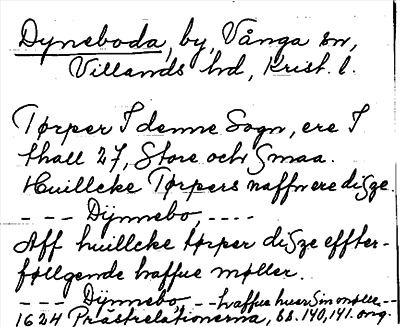 Dyneboda, by, Vånga sn,
Villands hd, Krist. l.
Tørper I denne Sogn, ere I
thall 27, Store och Smaa.
Huillcke Tørpers naffn ere disze.
--- Dÿnnebo ----
Aff huillcke tørper disze effter-
føllgende haffue møller.
--- Dÿnnebo -- haffue huer sin mølle --
1624 Prästrelationerna, bl. 140, 141. orig.